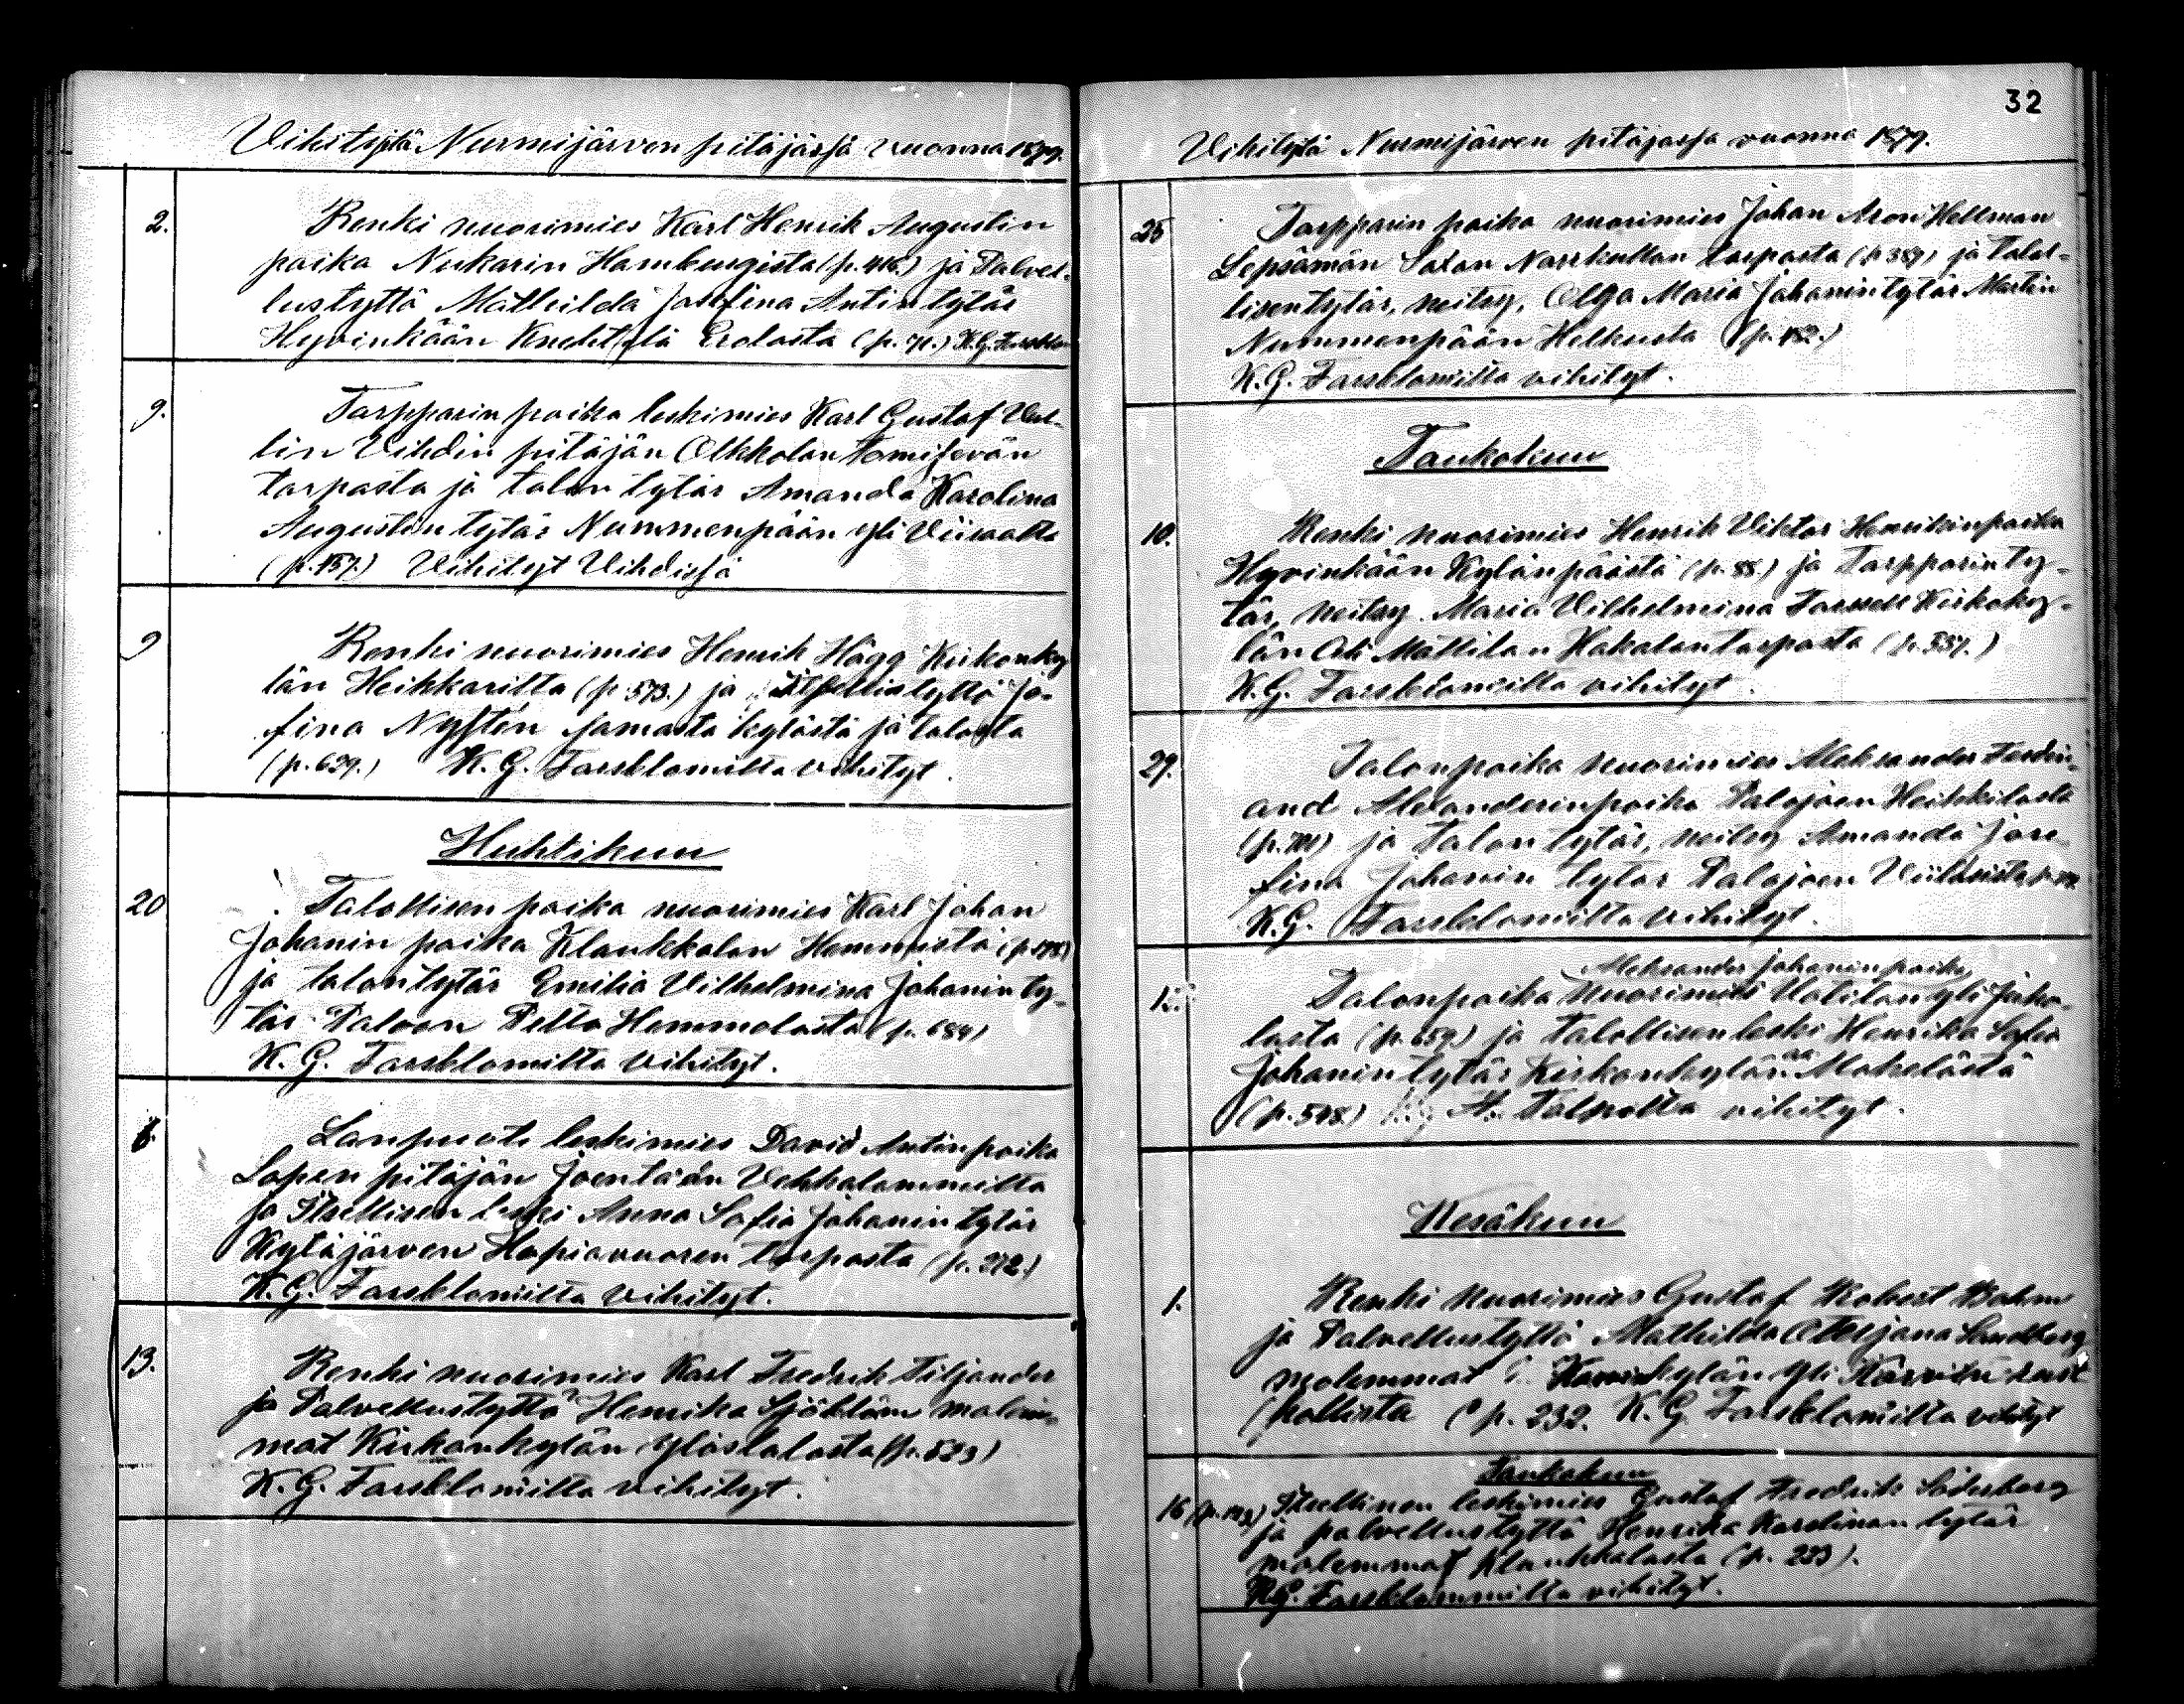 Vihityitä Nurmijärven pitäjässä vuonna 1879.
2. Renki nuorimies Karl Henrik Augustin
poika Nukarin Hambengista (p. 416.) ja Palvel-
lustyttö Mathilda Josefina Antin tytär
Hyvinkään Knehtilä Erolasta (p. 71.) K.G. Farsblom
9. Torpparin poika leskimies Karl Gustaf
lin Vihdin pitäjän Olkkolan
torpasta ja talon tytär Amanda Karolina
Augustin tytär Nummenpään yli
(p. 157.) Vihityt Vihdissä
9 Renki nuorimies Henrik Hägg Kirkonky
län Heikkarilta (p. 573.) ja tyttö Jo-
fina Nystén samasta kylästä ja talosta
(p. 629.) K. G. Farsblomilta vihityt.
Huhtikuu
20 Talollisen poika nuorimies Karl Johan
Johanin poika Klaukkalan Hemmistä
ja talontytär Emilia Vilhelmina Johanin ty-
tär Paloon Pelto Hemmolasta (p. 684)
K. G. Farsblomilta vihityt.
Lanpuoti leskimies David Antinpoika
Lopen pitäjän Joentaän Vehkalammilta
ja Itsellisen leski Anna Sofia Johanin tytär
Kytäjärven Hopiavuoren torpasta (p. 272.)
K. G. Farsblomilta vihityt.
13. Renki nuorimies Karl Fredrik Tiljander
ja Palvellustyttö Henrika Sjöblom molem-
mat Kirkonkylän Ylistalosta (p. 523)
K. G. Farsblomilta vihityt.
32
Vihityitä Nurmijärven pitäjässä vuonna 1879.
25 Torpparin poika nuorimies Johan Aron Hellman
Lepsämän Solan torpasta (p. 389) ja talol-
lisentytär, neitsy, Olga Maria Johanintytär Martin
Nummenpään Helkusta (p. 152.)
K. G. Farsblomilta vihityt.
Toukokuu
10. Renki nuorimies Henrik Viktor Henrikinpoika
Hyvinkään Kylänpäästä (p. 88.) ja Torpparin ty-
tär, neitsy Maria Vilhelmina Forssell Kirkoky-
län Ali Mattilan Hakalan torpasta (p. 557.)
K. G. Farsblomilta vihityt.
29. Talonpoika nuorimies Aleksander Ferdin-
and Alexanderinpoika Palojoen Heikkilästä
(p. 701) ja talon tytär, neitsy Amanda Jose-
fina Johanin tytär Palojoen
K. G. Farsblomilta vihityt.
Aleksander Johanin poika
Talonpoika nuorimies Uotilan yli Jako-
lasta (p. 659.) ja talollisen leski Henrika Sofia
Johanin tytär Kirkonkylän Mäkelästä
(p. 548.) A. Talpolta vihityt.
Kesäkuu
1. Renki nuorimies Gustaf Robert Bohm
ja Palvellustyttö Mathilda Otteljana Sandberg
molemmat kylän yli
pollista p. 232. K. G. Farsblomilta vihityt
Toukokuu
16 Itsellinen leskimies Gustaf Fredrik Söderberg
ja palvellustyttö Henrika Karolinan tytär
molemmat Klaukkalasta (p. 223).
K.G. Farsblommilta vihityt.